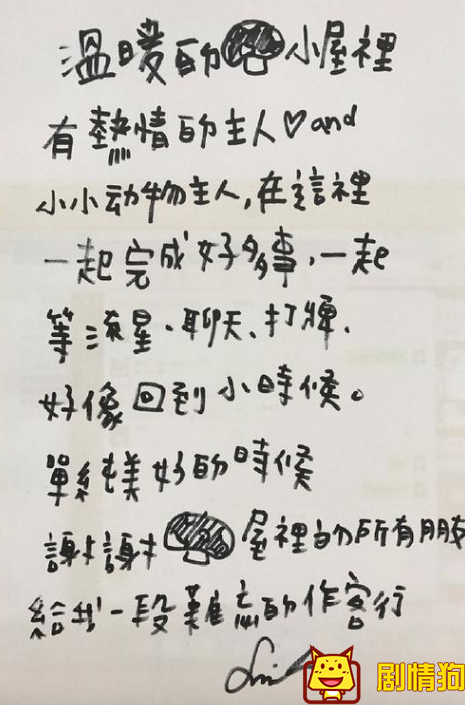 溫暖的小屋裡
有熱情的主人♡and
小小动物主人,在這裡
一起完成好多事,一起
等流星、聊天、打牌、
好像回到小時候。
單純美好的時候
謝謝屋裡的所有朋友
給我一段難忘的作客行
剧情狗